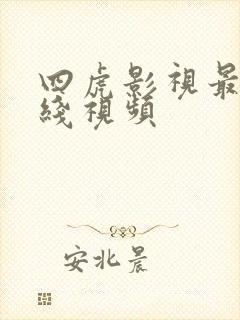 四虎影視最
綫視頻
安北晨